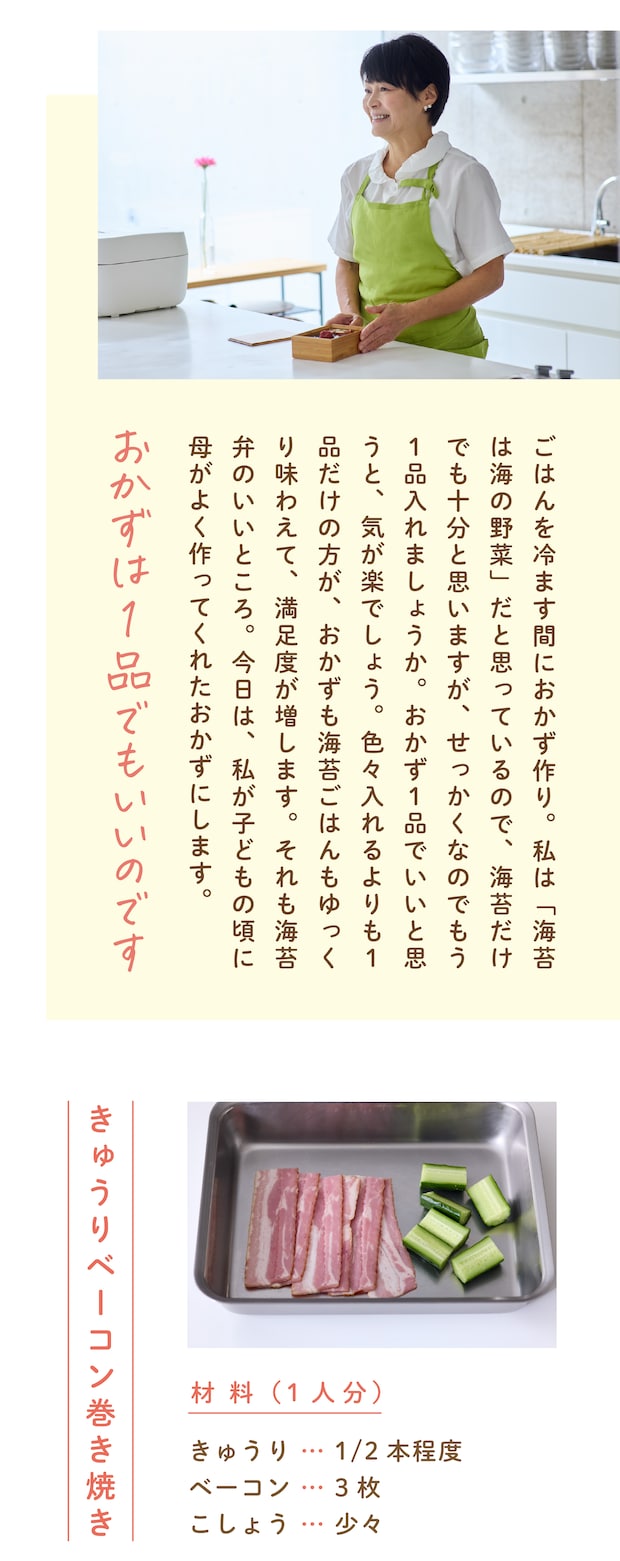 ごはんを冷ます間におかず作り。私は「海苔
は海の野菜」だと思っているので、海苔だけ
でも十分と思いますが、せっかくなのでもう
1品入れましょうか。おかず1品でいいと思
うと、気が楽でしょう。色々入れるよりも1
品だけの方が、おかずも海苔ごはんもゆっく
り味わえて、満足度が増します。それも海苔
弁のいいところ。今日は、私が子どもの頃に
母がよく作ってくれたおかずにします。
おかずは1品でもいいのです
きゅうりベーコン巻き焼き
材料（1人分）
きゅうり … 1/2本程度
ベーコン … 3枚
こしょう … 少々